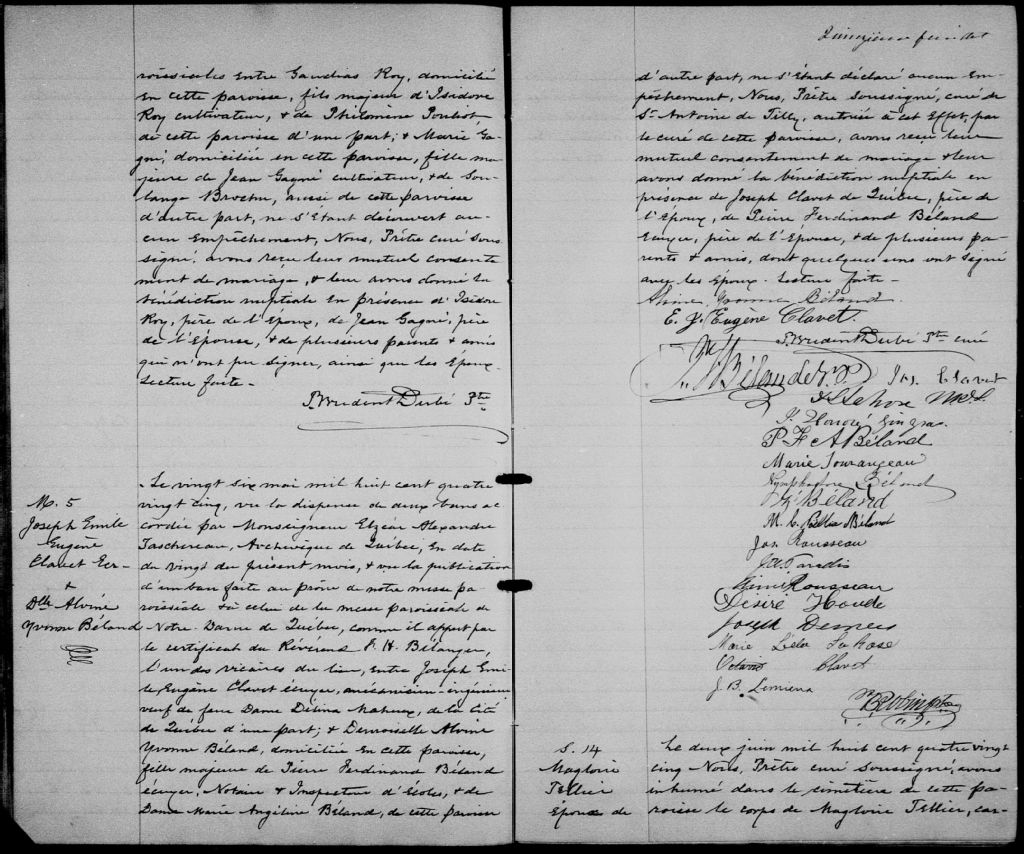 roissiales entre Gaudias Roy, domicilié
en cette paroisse, fils majeur d'Isidore
Roy cultivateur, & de Philomène Pouliot
de cette paroisse d'une part; & Marie Ga-
gné, domiciliée en cette paroisse, fille ma-
jeure de Jean Gagné cultivateur, & de Sou-
lange Brochu, aussi de cette paroisse
d'autre part, ne s'étant découvert au-
cun empêchement, Nous, Prêtre curé sous-
signé, avons reçu leur mutuel consente
ment de mariage, & leur avons donné la
bénédiction nuptiale en présence d'Isidore
Roy, père de l'époux, de Jean Gagné, père
de l'épouse, & de plusieurs parents & amis
qui n'ont pu signer, ainsi que les époux.
Lecture faite.
Prudent Dubé Ptre
M. 5
Joseph Emile
Eugène
Clavet Ecr
&
Dlle Alvine
Yvonne Béland
Le vingt six mai mil huit cent quatre
vingt cinq, vu la dispense de deux bans ac
cordée par Monseigneur Elzéar Alexandre
Taschereau, Archevêque de Québec, en date
du vingt du présent mois, & vu la publication
d'un ban faite au prône de notre messe pa
roissiale & à celui de la messe paroissiale de
Notre-Dame de Québec, comme il appert par
le certificat du Révérend F. H. Bélanger,
l'un des vicaires du lieu, entre Joseph Emi-
le Eugène Clavet écuyer, mécanicien-ingénieur
veuf de feue Dame Délina, de la Cité
de Québec d'une part; & Demoiselle Alvine
Yvonne Béland, domiciliée en cette paroisse,
fille majeure de Pierre Ferdinand Béland
écuyer, Notaire & Inspecteur d'écoles, & de
Dame Marie Angéline Béland, de cette paroisse
d'autre part, ne s'étant déclaré aucun em-
pêchement, Nous, Prêtre soussigné, curé de
St Antoine de Tilly, autorisé à cet effet, par
le curé de cette paroisse, avons reçu leur
mutuel consentement de mariage & leur
avons donné la bénédiction nuptiale en
présence de Joseph Clavet de Québec, père de
l'époux, de Pierre Ferdinand Béland
écuyer, père de l'épouse, & de plusieurs pa-
rents & amis, dont quelques uns ont signé
avec les époux. Lecture faite.
Yvonne Béland
E. J. Eugène Clavet.
Prudent Dubé Ptre curé
Béland
Jos. Clavet
J. Honoré Gingras
P. F. A Béland
Marie Tourangeau
Béland
Béland
Béland
Jos. Rousseau
Paradis
Rousseau
Désiré Houde
Joseph Demers
Marie Larose
Octavie Clavet
J. B. Lemieux
S. 14
Magloire
Tellier
Epoux de
Le deux juin mil huit cent quatre vingt
cinq Nous, Prêtre curé soussigné, avons
inhumé dans le cimetière de cette pa-
roisse le corps de Magloire Tellier, car-